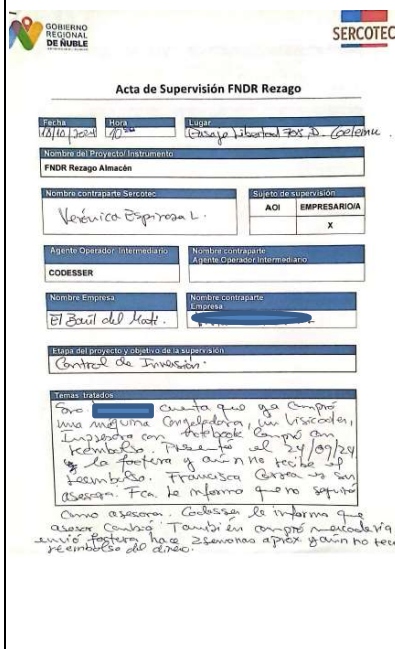 GOBIERNO
REGIONAL
DE ÑUBLE
SERCOTEC
Acta de Supervisión FNDR Rezago
Fecha Hora Lugar
18/10/2024 10:00 Pasaje Libertad 705, D. Coelemu
Nombre del Proyecto/ Instrumento
FNDR Rezago Almacén
Nombre contraparte Sercotec Sujeto de supervisión
AOI EMPRESARIO/A
Verónica Espinosa L. X
Agente Operador Intermediario Nombre contraparte
Agente Operador Intermediario
CODESSER
Nombre Empresa Nombre contraparte
Empresa
El Baúl del Mati.
Etapa del proyecto y objetivo de la supervisión
Control de Inversión.
Temas tratados
Sra. cuenta que ya compró
una máquina Congeladora, un Visicooler,
Impresora con notebook compró con
reembolso. Presentó el 24/09/24
la factura y aún no recibe el
reembolso. Francisca Correa es su
asesora. Fca. le informo que no seguirá
como asesora. Codesser le informa que
asesor cambió. También compró mercadería
envió factura hace 2 semanas aprox. y aún no
reembolso del dinero.